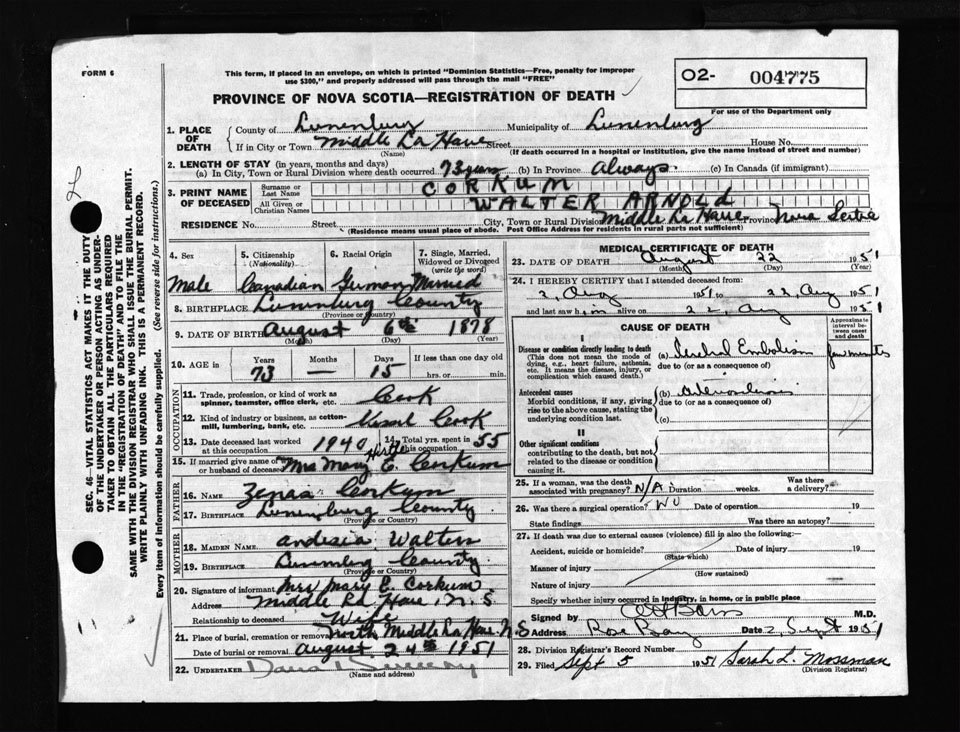 FORM 6
This form, if placed in an envelope, on which is printed "Dominion Statistics—Free, penalty for improper
use $300," and properly addressed will pass through the mail "FREE"
02- 004775
For use of the Department only
PROVINCE OF NOVA SCOTIA—REGISTRATION OF DEATH
1. PLACE OF DEATH
County of Lunenburg Municipality of Lunenburg
If in City or Town Middle La Have Street House No.
(Name) (If death occurred in a hospital or institution, give the name instead of street and number)
2. LENGTH OF STAY (in years, months and days)
(a) In City, Town or Rural Division where death occurred 73 years (b) In Province Always (c) In Canada (if immigrant)
3. PRINT NAME OF DECEASED
Surname or Last Name CORKUM
All Given or Christian Names WALTER ARNOLD
RESIDENCE No. Street City, Town or Rural Division Middle La Have Province Nova Scotia
(Residence means usual place of abode. Post Office Address for residents in rural parts not sufficient)
4. Sex 5. Citizenship (Nationality) 6. Racial Origin 7. Single, Married, Widowed or Divorced (write the word)
Male Canadian German Married
8. BIRTHPLACE Lunenburg County
(Province or Country)
9. DATE OF BIRTH August 6th 1878
(Month) (Day) (Year)
10. AGE in Years Months Days If less than one day old
73 — 15 hrs. or min.
OCCUPATION
11. Trade, profession, or kind of work as spinner, teamster, office clerk, etc. Cook
12. Kind of industry or business, as cotton-mill, lumbering, bank, etc. Vessel Cook
13. Date deceased last worked at this occupation 1940 14. Total yrs. spent in 55
15. If married give name of wife or husband of deceased Mrs Mary E. Corkum
Hirtle
FATHER
16. NAME Zenas Corkum
17. BIRTHPLACE Lunenburg County
(Province or Country)
MOTHER
18. MAIDEN NAME Walters
19. BIRTHPLACE Lunenburg County
(Province or Country)
20. Signature of informant Mrs Mary E. Corkum
Address Middle La Have, N. S
Relationship to deceased Wife
21. Place of burial, cremation or removal North Middle La Have N.S
Date of burial or removal August 24th 1951
22. UNDERTAKER Sweeny
(Name and address)
MEDICAL CERTIFICATE OF DEATH
23. DATE OF DEATH August 22 1951
(Month) (Day) (Year)
24. I HEREBY CERTIFY that I attended deceased from:
2, Aug 1951 to 22, Aug 1951
and last saw him alive on 22, Aug 1951
CAUSE OF DEATH
Approximate interval between onset and death
I
Disease or condition directly leading to death
(This does not mean the mode of dying, e.g., heart failure, asthenia, etc. It means the disease, injury, or complication which caused death.)
(a) Cerebral Embolism few minutes
due to (or as a consequence of)
Antecedent causes
Morbid conditions, if any, giving rise to the above cause, stating the underlying condition last.
(b)
due to (or as a consequence of)
(c)
II
Other significant conditions
contributing to the death, but not related to the disease or condition causing it.
25. If a woman, was the death associated with pregnancy? N/A Duration weeks. Was there a delivery?
26. Was there a surgical operation? NO Date of operation 19
State findings Was there an autopsy?
27. If death was due to external causes (violence) fill in also the following:
Accident, suicide or homicide? Date of injury 19
(State which)
Manner of injury
(How sustained)
Nature of injury
Specify whether injury occurred in industry, in home, or in public place
Signed by M.D.
Address Rose Bay Date 2, Sept 1951
28. Division Registrar's Record Number
29. Filed Sept 5 1951 Sarah L. Mossman
(Division Registrar)
SEC. 46—VITAL STATISTICS ACT MAKES IT THE DUTY
OF THE UNDERTAKER OR PERSON ACTING AS UNDER-
TAKER TO OBTAIN ALL THE PARTICULARS REQUIRED
IN THE "REGISTRATION OF DEATH" AND TO FILE THE
SAME WITH THE DIVISION REGISTRAR WHO SHALL ISSUE THE BURIAL PERMIT.
WRITE PLAINLY WITH UNFADING INK. THIS IS A PERMANENT RECORD.
Every item of information should be carefully supplied. (See reverse side for instructions.)